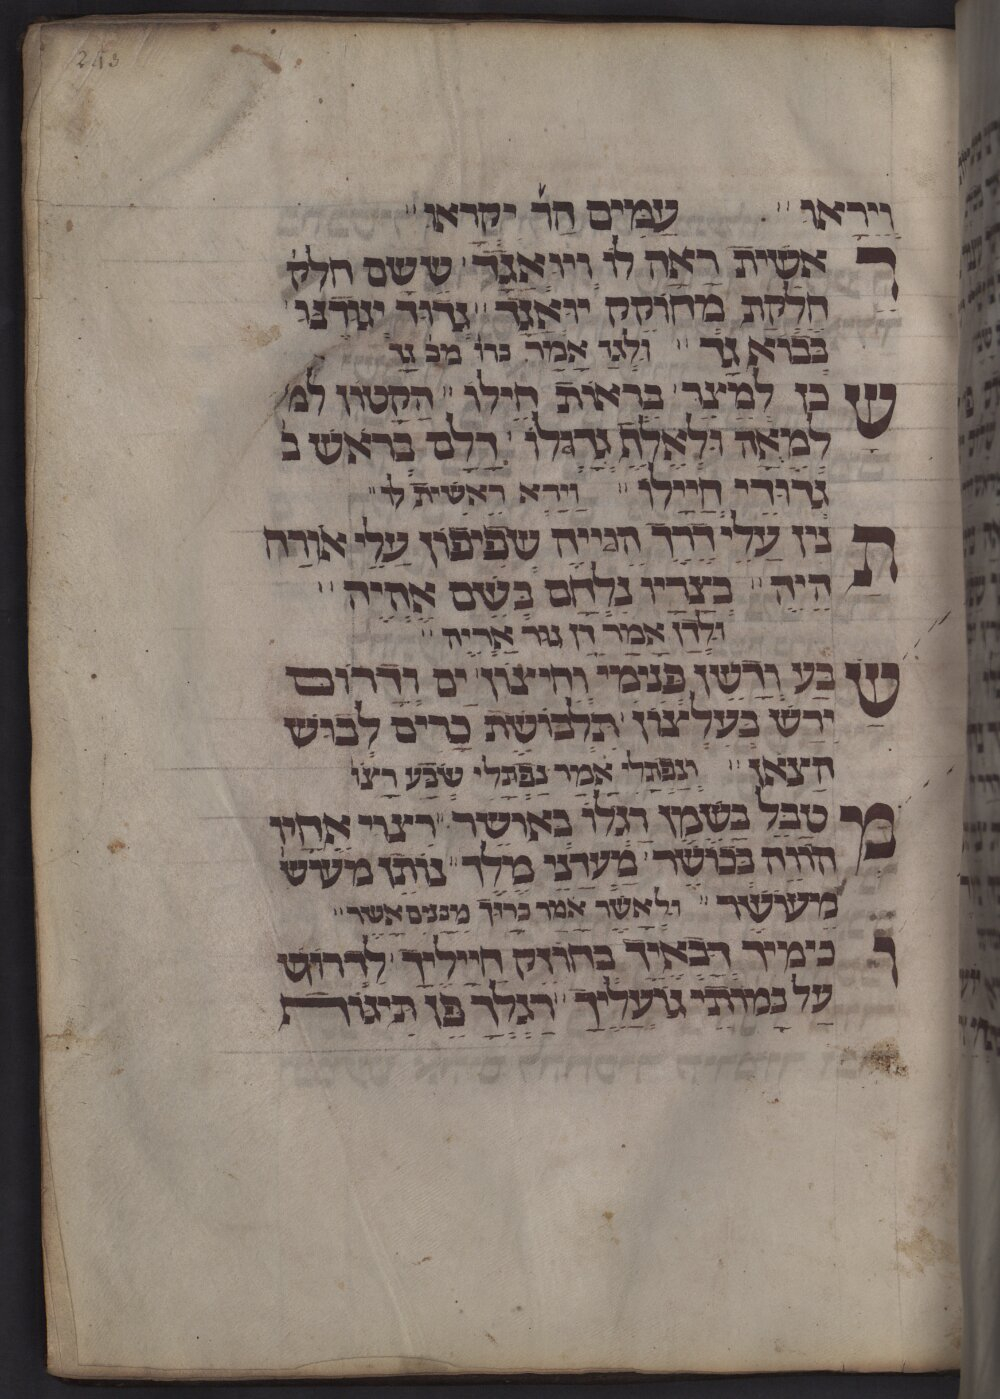 243
ויראו׃ עמים הר יקראו׃
ראשית ראה לו ויואגד׳ ששם חלק
חלקת מחוקק יואגד׳׳ גדוד יגודנו׳
בבוא גד׳׳ ולגד אמר ברו׳ מב׳ גד
שכן למיצר׳ בראות חילו׳׳ הקטון למ
למאה ולאלף גודלו׳ הלם בראש
גדודי חיילו׳׳ וירא ראשית לו׳׳
תנין עלי דרך הגייח שפיפון עלי אורח
היה׳׳ בצריו נלחם בשם אהיה׳׳
ולדן אמר דן גור אריה׳׳
שבע ודשן פנימי וחיצון׳ ים ודרום
ירש בעליצון׳ תלבושת כרים לבוש
הצאן׳׳ ונפתלי אמר נפתלי שבע רצו׳
מטבל בשמן רגלו באושר׳׳ ריצוי אחיו
הווה בכושר׳ מעדני מלך׳׳ נותן מעש
מיעושר׳׳ ולאשר אמר ברוך מבנים אשר׳׳
רכימיך דבאיך בחוזק חייליך׳ לדרוש
על במותי גועליך׳׳ רגלך פן תיגוח